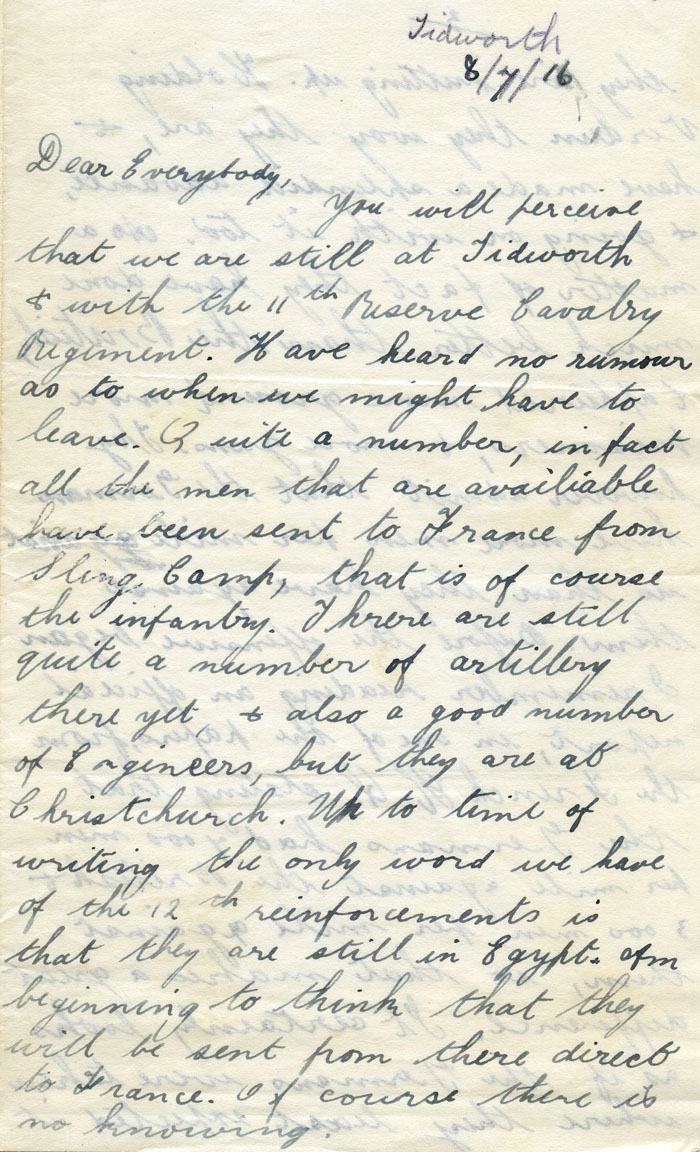 Tidworth
8/7/16
Dear Everybody,
You will perceive
that we are still at Tidworth
& with the 11th Reserve Cavalry
Regiment. Have heard no rumour
as to when we might have to
leave. Quite a number, in fact
all the men that are availiable
have been sent to France from
Sling Camp, that is of course
the infantry. Threre are still
quite a number of artillery
there yet & also a good number
of Engineers, but they are at
Christchurch. Up to time of
writing the only word we have
of the 12th reinforcements is
that they are still in Egypt. Am
beginning to think that they
will be sent from there direct
to France. Of course there is
no knowing.